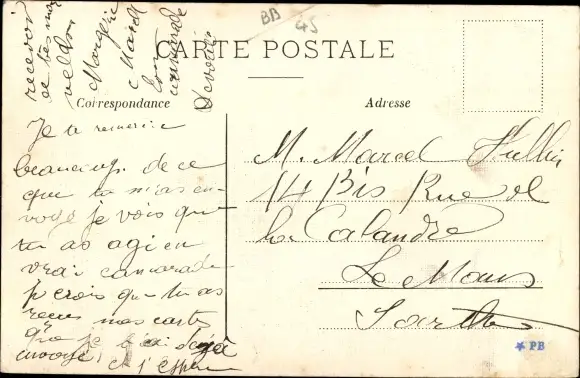 BB 45
CARTE POSTALE
Correspondance
Adresse
Je te remercie
beaucoup de ce
que tu m'as en
voyé je vois que
tu as agi en
vrai camarade
je crois que tu as
reçu mes cartes
que je t'ai déjà
envoyé
et j'espère
recevoir
de tes nou
velles
Margerie
Marcel
ton
camarade
dévoué
M. Marcel Hullin
14 Bis Rue de
la Calandre
Le Mans
Sarthe
PB